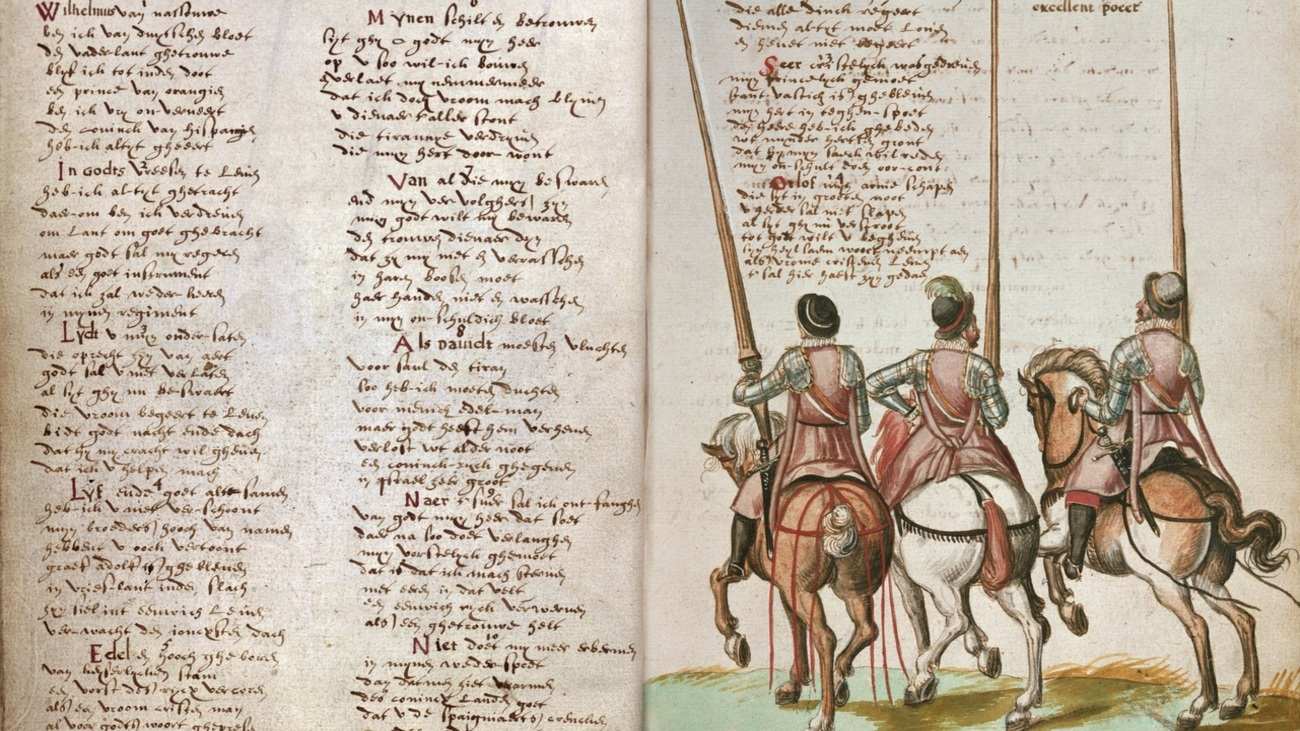 Wilhelmus van nassouwe
ben ick van duytschen bloet
den vaderlant ghetrouwe
blyf ick tot inden doot
een prince van orangien
ben ick vry on-verveert
den coninck van hispangien
heb-ick altyt gheeert
In godts vreesen te Leven
heb-ick altyt ghetracht
daer-om ben ick verdreven
om Lant om goet ghebracht
maer godt sal my regeren
als een goet instrument
dat ick zal weder keeren
in mynen regiment
Lydt u myn onder-saten
die oprecht zyn van aert
godt sal u niet verlaten
al syt ghy nu beswaert
die vroom begeert te Leven
bidt godt nacht ende dach
dat hy my cracht wil gheven
dat ick u helpen mach
Lyf ende goet alte samen
heb-ick u niet ver-schoont
myn broeders hooch van namen
hebbent u ooch vertoont
graef adolf is ghebleven
in vrieslant inden slach
zyn siel int eeuwich Leven
ver-wacht den joncxsten dach
Edel en hooch ghebooren
van keyserlycken stam
een vorst des rycx vercoren
als een vroom cristen man
al voor godts woort gheprese
Mynen schilt en betrouwen
syt ghy o godt myn heer
op u soo wil-ick bouwen
verlaet my nemmermeer
dat ick doch vroom mach blyven
u dienaer t'aller stont
die tirannye verdryven
die myn hert door wont
Van al die my beswaren
end myn vervolghers zyn
myn godt wilt my bewaren
den trouwen dienaer dyn
dat zy my niet en verrasschen
in haren boosen moet
haer handen niet en wasschen
in myn on-schuldich bloet
8
Als david moesten vluchten
voor saul den tiran
soo heb-ick moeten suchten
voor menich edel-man
maer godt heeft hem verheven
verlost wt alder noot
een coninck-ryck ghegeven
in israel heer groot
9
Naer t'suer sal ick ont-fanghen
van godt myn heer dat soet
daer na soo doet verlanghen
myn vorstelyck ghemoet
dat is dat ick mach sterven
met eeren in dat velt
een eeuwich ryck verwerven
als een ghetrouwe helt
10
Niet doet my meer erbermen
in mynen weder-spoet
dan datmen siet verarmen
des conincx Landen goet
dat u de spaignaerts crencken
die alle dinck regeert
diemen altyt moet Loven
en heeft niet begeert
Seer cristelyck was gedreven
myn princelyck gemoet
stantvastich is ghebleven
myn hert in teghen-spoet
den heere heb-ick ghebeden
wt mynder herten gront
dat hy myn saeck wil reden
myn on-schult doen oor-cont
Orlof myn arme schapen
die syt in grooten noot
u herder sal niet slapen
al syt ghy nu verstroot
tot godt wilt u begheven
syn heylsaem woort neempt aen
als vrome cristenen Leven
t'sal hier haest zyn gedaen
excellent poeet